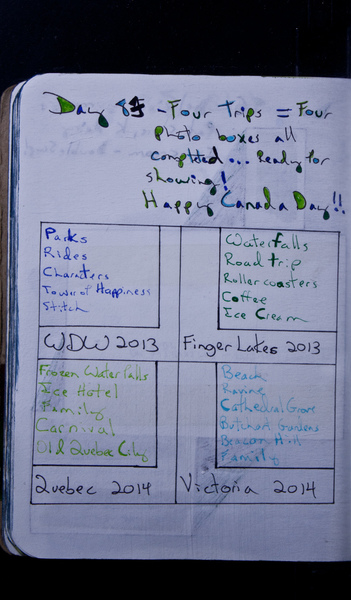 Day 84 - Four Trips = Four
Photo boxes all
completed... Ready for
showing!
Happy Canada Day!!
Parks
Rides
Characters
Tower of Happiness
Stitch
WDW 2013
Waterfalls
Road trip
Roller coasters
Coffee
Ice Cream
Finger Lakes 2013
Frozen Waterfalls
Ice Hotel
Family
Carnival
Old Quebec City
Quebec 2014
Beach
Ravine
Cathedral Grove
Butchart Gardens
Beacon Hill
Family
Victoria 2014